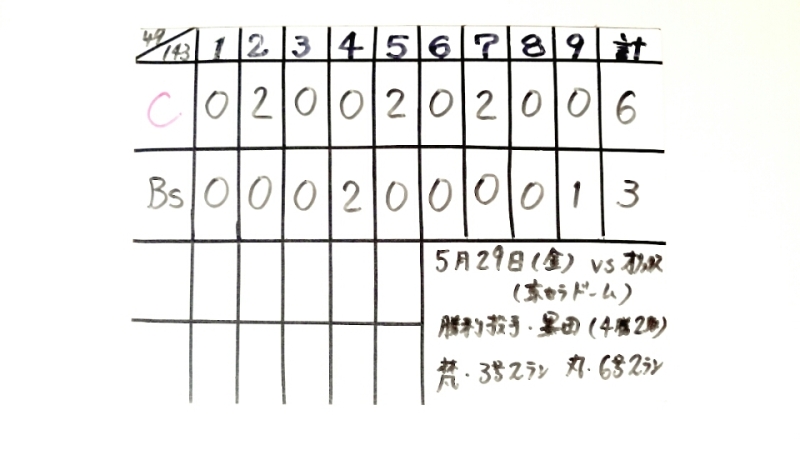 49/143 1 2 3 4 5 6 7 8 9 計
C 0 2 0 0 2 0 2 0 0 6
Bs 0 0 0 2 0 0 0 0 1 3
5月29日(金) vs オリ
(京セラドーム)
勝利投手・黒田(4勝2敗)
梵・3号2ラン 丸・6号2ラン